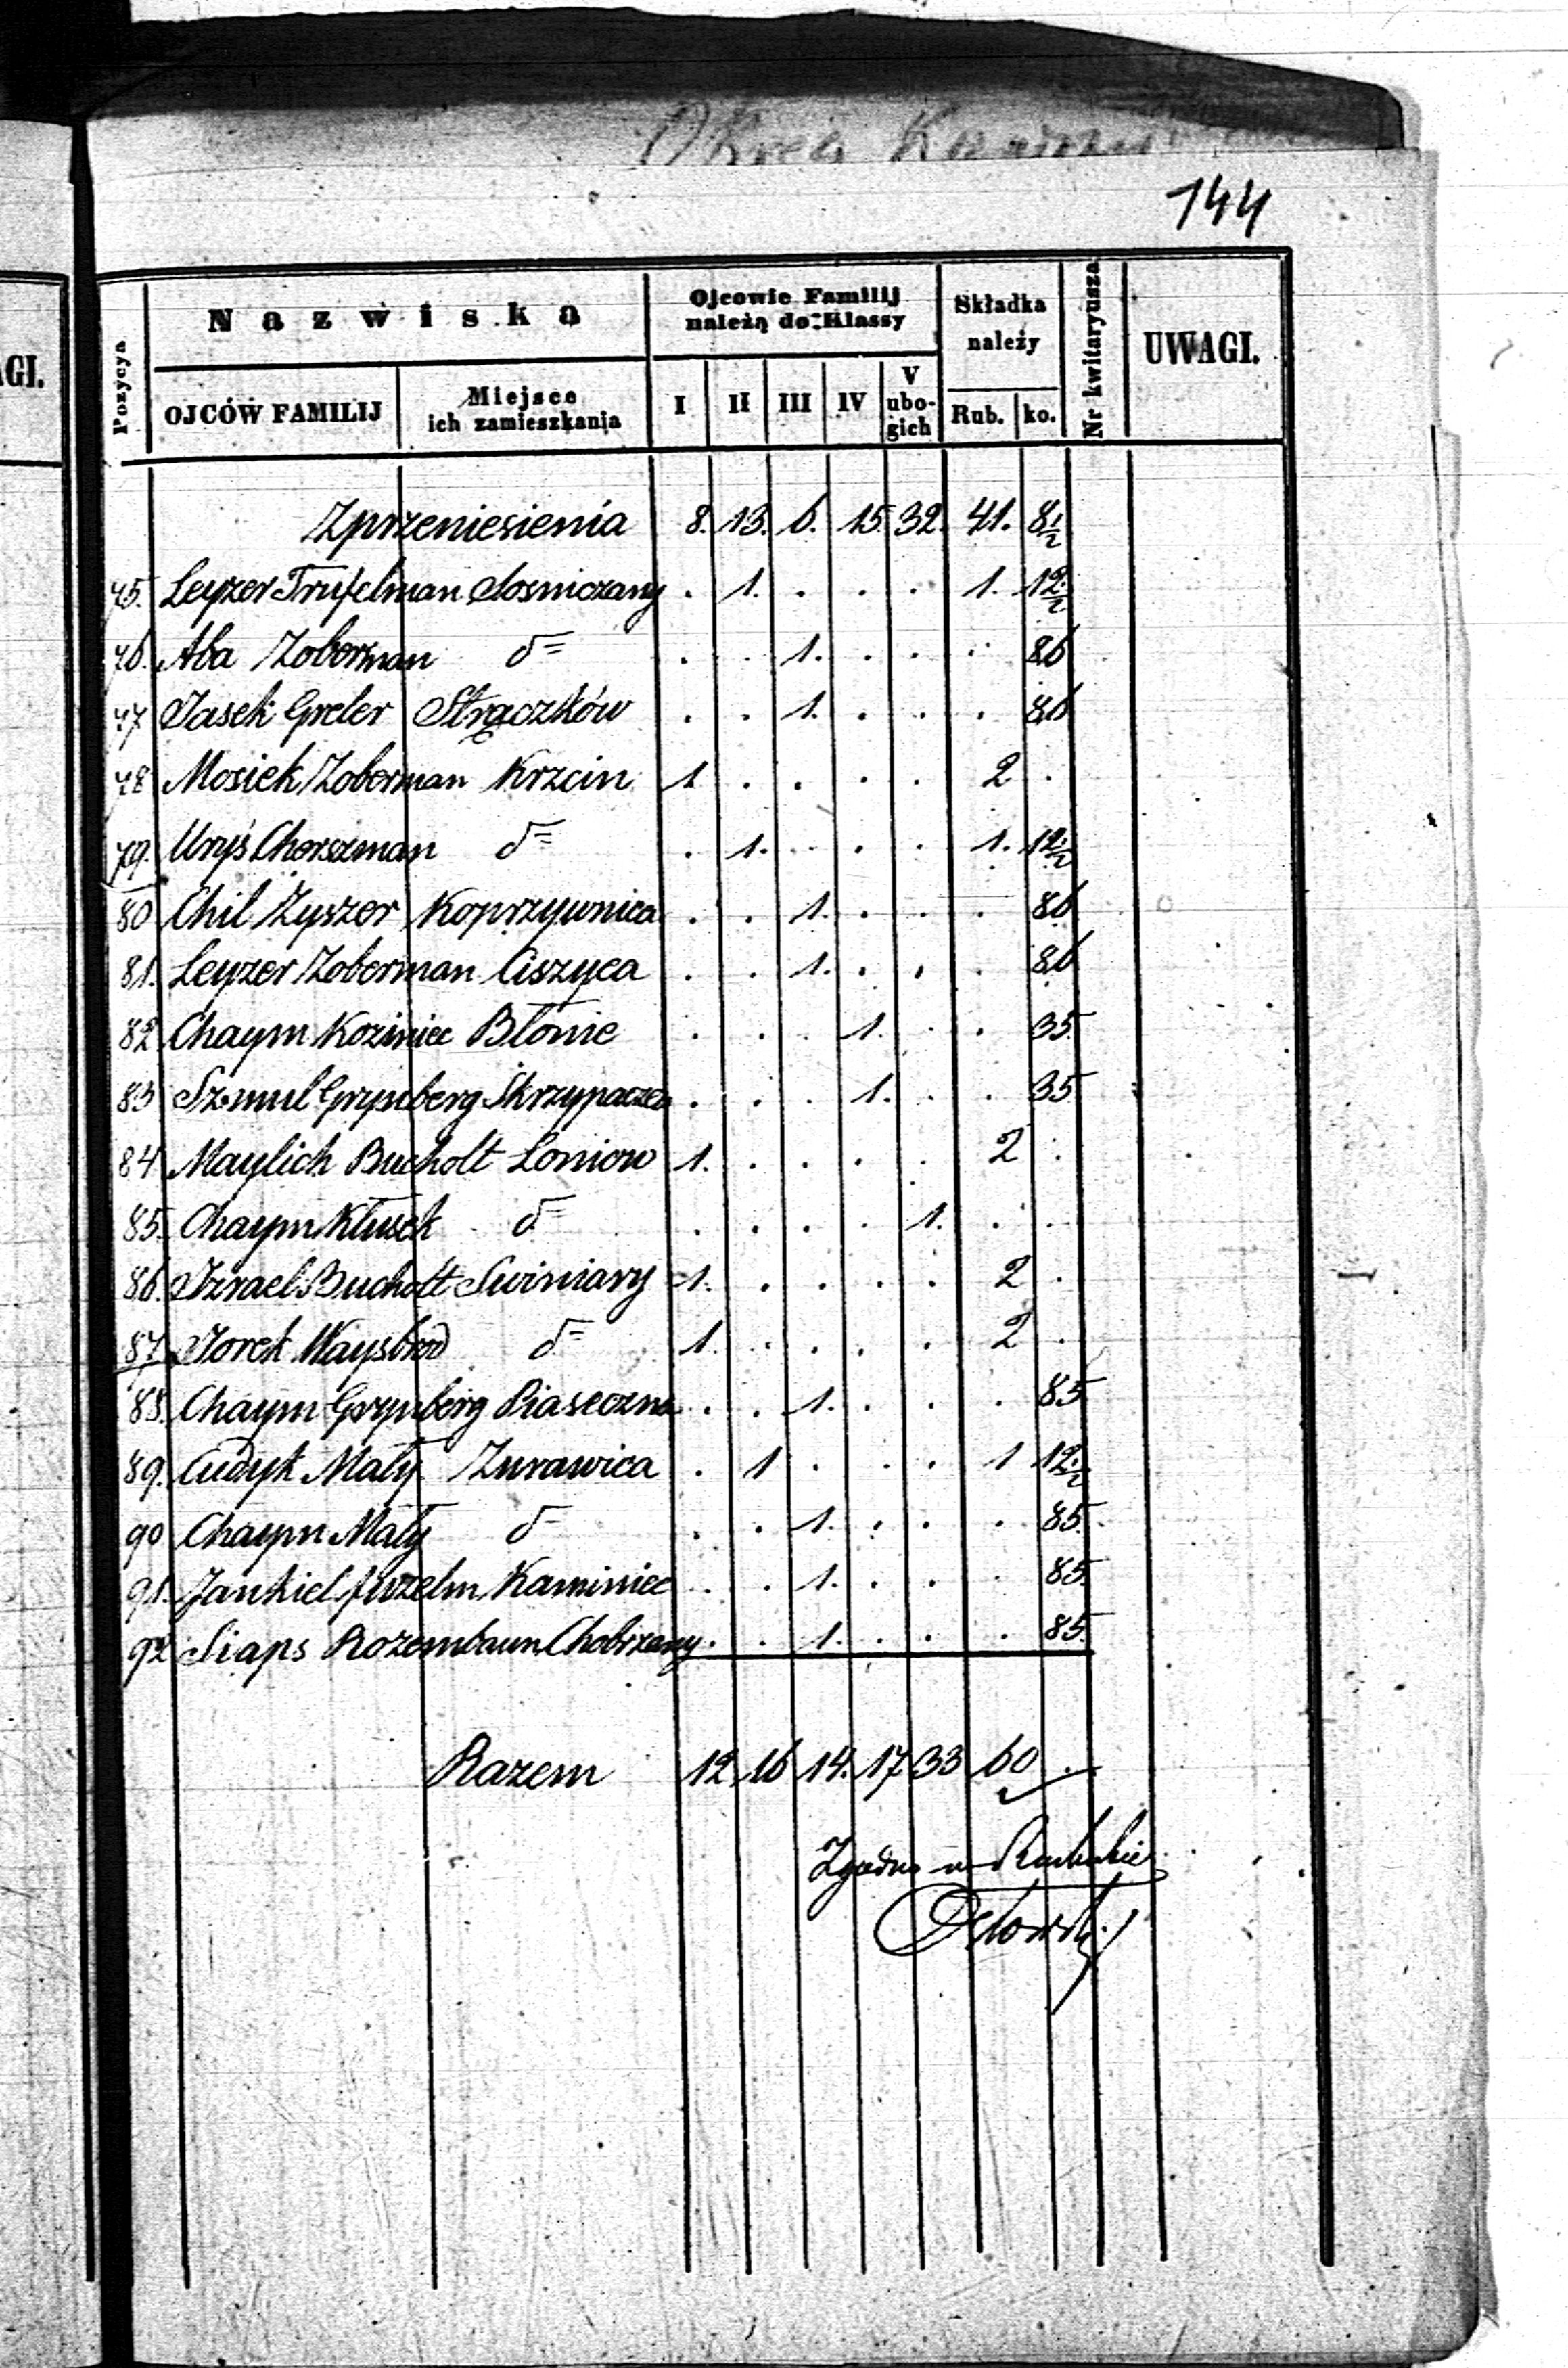 144
AGI.
Pozycya
Nazwiska
OJCÓW FAMILIJ
Miejsce ich zamieszkania
Ojcowie Familij należą do Klassy
I II III IV V ubogich
Składka należy
Rub. ko.
Nr kwitaryusza
UWAGI.
Zprzeniesienia 8. 13. 6. 15 32. 41. 8 1/2
75. Leyzer Trufelman Sosniczany . 1. . . . 1. 12 1/2
76. Aba Zoberman d= . . 1. . . . 86
77 Jasek Greler Strączków . . 1. . . . 86
78 Mosiek Zoberman Krzcin 1 . . . . 2 .
79. Uryś Chorszman d= . 1. . . . 1. 12 1/2
80 Chil Zyszer Koprzywnica . . 1. . . . 86
81. Leyzer Zoberman Ciszyca . . 1. . . . 86
82 Chaym Koziniec Błonie . . . 1. . . 35.
83 Szmul Grynberg Skrzypaczea . . . 1. . . 35
84 Maylich Bucholt Loniow 1. . . . . 2 .
85. Chaym Kłusek d= . . . . 1. . .
86. Izrael Bucholt Swiniary 1. . . . . 2 .
87. Jorek Waysbrod d= 1. . . . . 2 .
88. Chaym Grynberg Piaseczna . . 1. . . . 85
89. Cudyk Mały Zurawica . 1 . . . 1 12 1/2
90 Chaym Mały d= . . 1. . . . 85.
91. Jankiel Kaminiec . . 1. . . . 85.
92 Siaps Rozembaum Chobrzany . . 1. . . . 85.
Razem 12. 16 14. 17 33 60 .